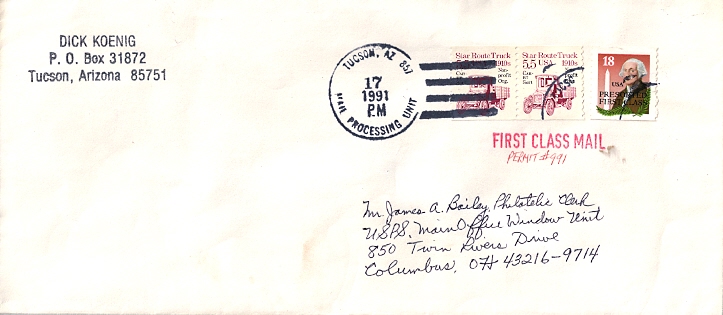 DICK KOENIG
P. O. Box 31872
Tucson, Arizona 85751
TUCSON, AZ 857
17
1991
PM
MAIL PROCESSING UNIT
Star Route Truck
5.5 USA 1910s
Car-Rt Sort
Non-profit Org.
Star Route Truck
5.5 USA 1910s
Car-Rt Sort
18
USA
PRESORTED
FIRST-CLASS
FIRST CLASS MAIL
PERMIT #991
Mr. James A. Bailey, Philatelic Clerk
USPS, Main Office Window Unit
850 Twin Rivers Drive
Columbus, OH 43216-9714